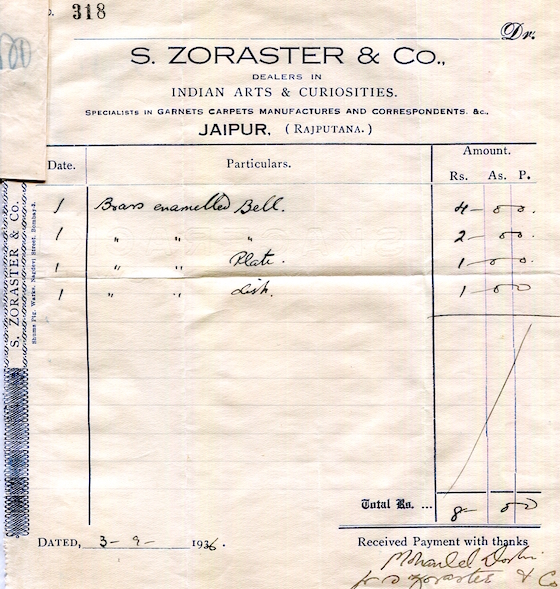 318
Dr.
S. ZORASTER & Co.,
DEALERS IN
INDIAN ARTS & CURIOSITIES.
SPECIALISTS IN GARNETS CARPETS MANUFACTURES AND CORRESPONDENTS. &c.,
JAIPUR, (RAJPUTANA.)
Date. Particulars. Amount.
Rs. As. P.
1 Brass enamelled Bell. 4 - 0 0.
1 " " " 2 - 0 0.
1 " " Plate. 1 - 0 0.
1 " " dish. 1 - 0 0
Total Rs. ... 8 - 0 0
DATED, 3 - 9 - 1936.
Received Payment with thanks
for S Zoraster & Co
S. ZORASTER & Co.
Nagdevi Street, Bombay-3.